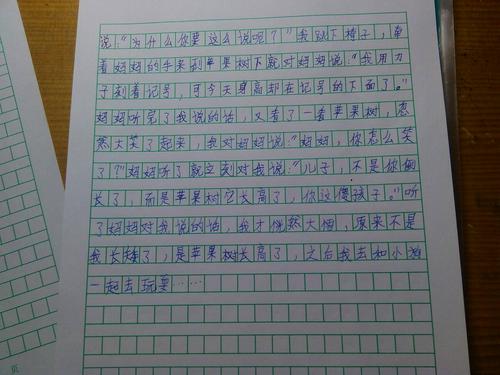 说:“为什么你要这么说呢?”我跳下椅子,牵
着妈妈的手来到苹果树下就对妈妈说:“我用刀
子刻着记号,可今天身高却在记号的下面了。”
妈妈听完了我说的话,又看了一看苹果树,忽
然大笑了起来,我对妈妈说:“妈妈,你怎么笑
了?”妈妈听了就立刻对我说:“儿子,不是你
长了,而是苹果树它长高了,你这傻孩子。”听
了妈妈对我说的话,我才恍然大悟,原来不是
我长矮了,是苹果树长高了,之后我去和小狗
一起去玩耍……